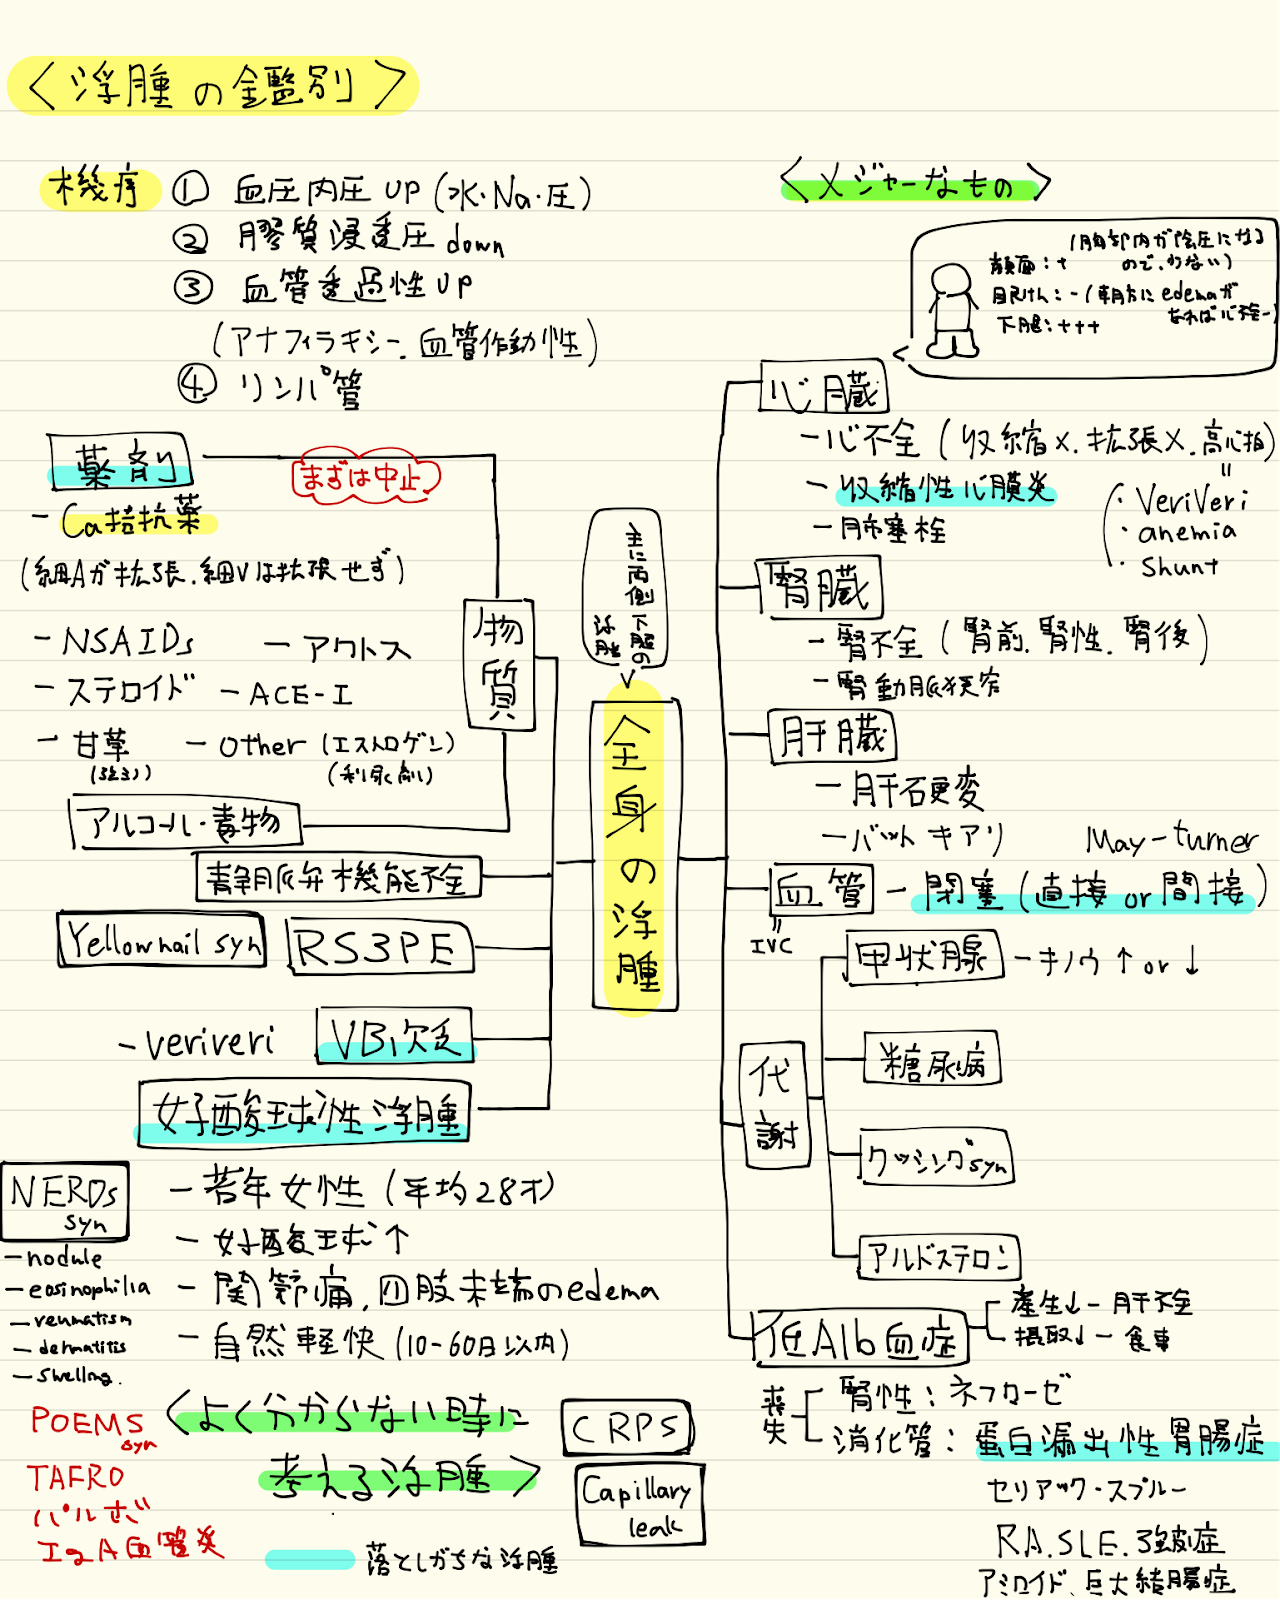 <浮腫の鑑別>
機序 ① 血圧内圧 UP (水・Na・圧)
② 膠質浸透圧 down
③ 血管透過性 UP
(アナフィラキシー、血管作動性)
④ リンパ管
薬剤
まずは中止
- Ca拮抗薬
(細Aが拡張、細Vは拡張せず)
- NSAIDs
- アクトス
- ステロイド
- ACE-I
- 甘草
- other (エストロゲン)
(利尿剤)
物質
アルコール・毒物
静脈弁機能不全
Yellownail syn
RS3PE
- veriveri
VB1欠乏
好酸球性浮腫
- 若年女性 (平均28才)
- 好酸球↑
- 関節痛、四肢末端のedema
- 自然軽快 (10-60日以内)
NERDs
syn
- nodule
- eosinophilia
- reumatism
- dermatitis
- swelling.
POEMS
syn
TAFRO
パルボ
IgA血管炎
<よく分からない時に
考える浮腫>
CRPS
Capillary
leak
落としがちな浮腫
主に両側
下腿の
浮腫
全身の浮腫
<メジャーなもの>
(胸部内が陰圧になる
ので、わるい)
顔面：+
眼けん：- (朝方にedemaが
なれば心不全-)
下腿：+++
心臓
- 心不全 (収縮×、拡張×、高心拍)
- 収縮性心膜炎
- 肺塞栓
"
・VeriVeri
・anemia
・Shunt
腎臓
- 腎不全 (腎前、腎性、腎後)
- 腎動脈狭窄
肝臓
- 肝石更変
- バットキアリ
May-turner
血管 - 閉塞 (直接 or 間接)
"
IVC
代謝
甲状腺 - キノウ ↑ or ↓
糖尿病
クッシングsyn
アルドステロン
低Alb血症
産生↓ - 肝不全
摂取↓ - 食事
喪失
腎性：ネフローゼ
消化管：蛋白漏出性胃腸症
セリアック・スプルー
RA、SLE、強皮症
アミロイド、巨大結腸症